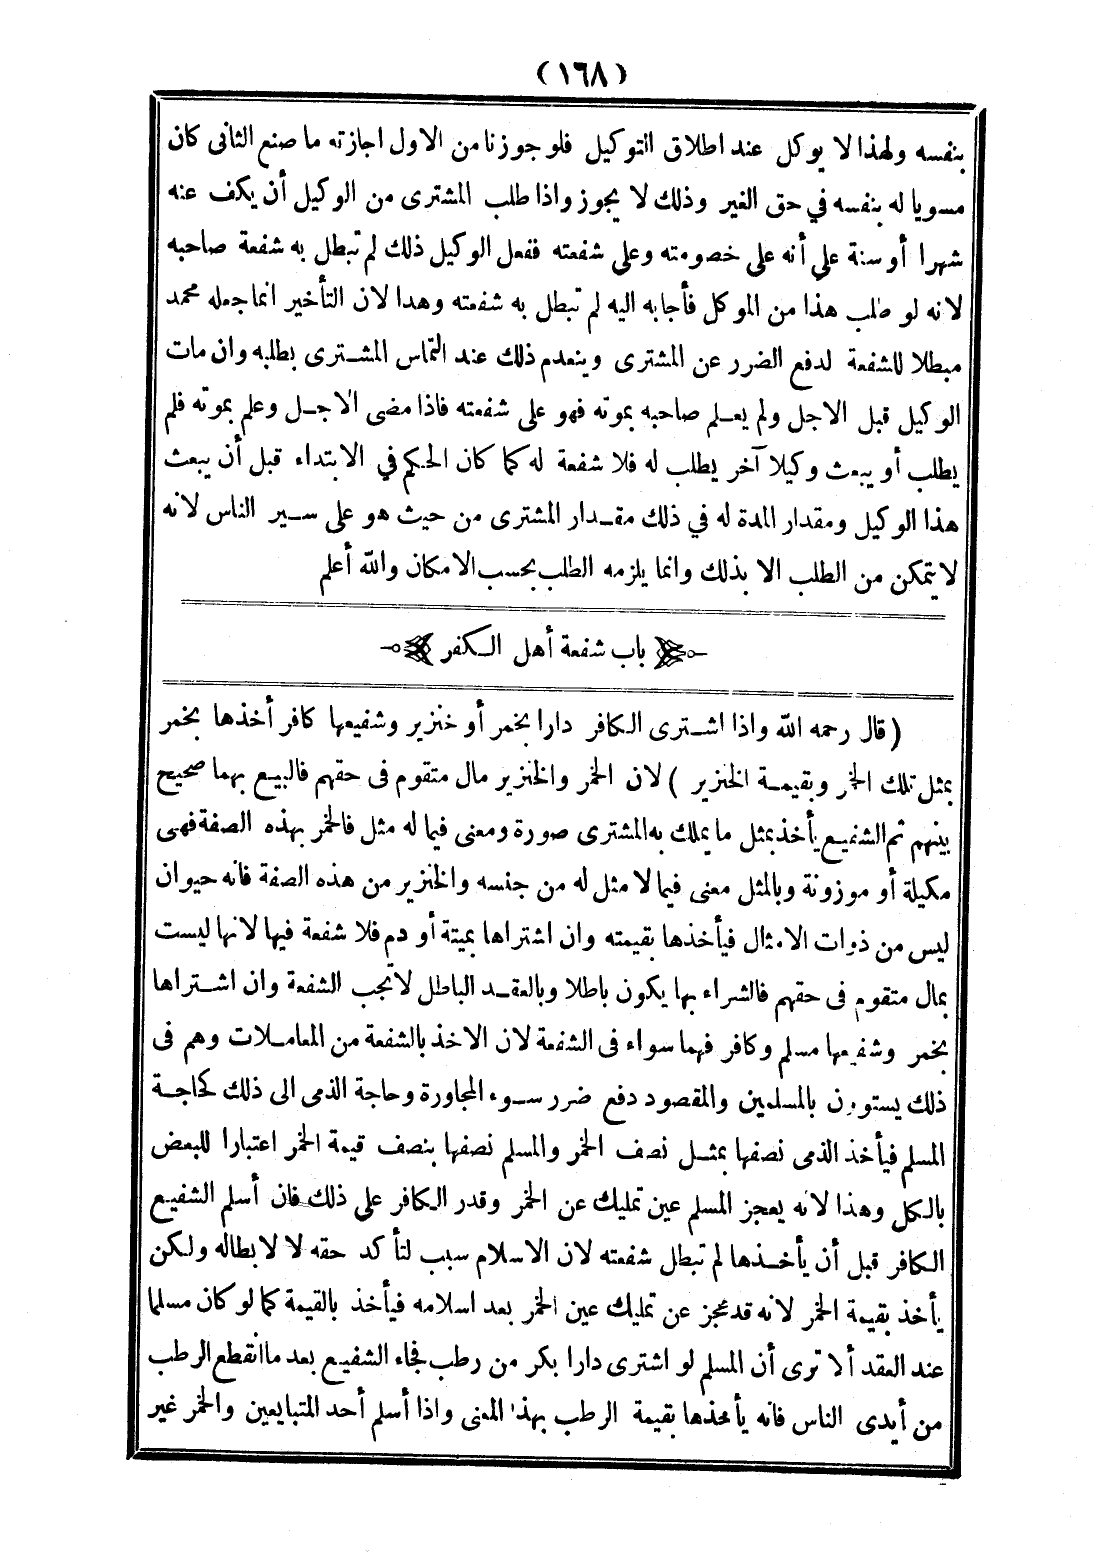 (١٦٨)
بنفسه ولهذا لا يوكل عند اطلاق التوكيل فلو جوزنا من الاول اجازته ما صنع الثانى كان
مسويا له بنفسه في حق الغير وذلك لا يجوز واذا طلب المشترى من الوكيل أن يكف عنه
شهرا أو سنة على أنه على خصومته وعلى شفعته ففعل الوكيل ذلك لم تبطل به شفعة صاحبه
لانه لو طلب هذا من الموكل فأجابه اليه لم تبطل به شفعته وهذا لان التأخير انما جعله محمد
مبطلا للشفعة لدفع الضرر عن المشترى وينعدم ذلك عند التماس المشترى بطلبه وان مات
الوكيل قبل الاجل ولم يعلم صاحبه بموته فهو على شفعته فاذا مضى الاجل وعلم بموته فلم
يطلب أو يبعث وكيلا آخر يطلب له فلا شفعة له كما كان الحكم في الابتداء قبل أن يبعث
هذا الوكيل ومقدار المدة له في ذلك مقدار المشترى من حيث هو على سير الناس لانه
لا يتمكن من الطلب الا بذلك وانما يلزمه الطلب بحسب الامكان والله أعلم
باب شفعة أهل الكفر
( قال رحمه الله واذا اشترى الكافر دارا بخمر أو خنزير وشفيعها كافر أخذها بخمر
بمثل تلك الخمر وبقيمة الخنزير ) لان الخمر والخنزير مال متقوم فى حقهم فالبيع بهما صحيح
بينهم ثم الشفيع يأخذ بمثل ما يملك به المشترى صورة ومعنى فيما له مثل فالخمر بهذه الصفة فهى
مكيلة أو موزونة وبالمثل معنى فيما لا مثل له من جنسه والخنزير من هذه الصفة فانه حيوان
ليس من ذوات الامثال فيأخذها بقيمته وان اشتراها بميتة أو دم فلا شفعة فيها لانها ليست
بمال متقوم فى حقهم فالشراء بها يكون باطلا وبالعقد الباطل لا تجب الشفعة وان اشتراها
بخمر وشفيعها مسلم وكافر فهما سواء فى الشفعة لان الاخذ بالشفعة من المعاملات وهم فى
ذلك يستوون بالمسلمين والمقصود دفع ضرر سوء المجاورة وحاجة الذمى الى ذلك كحاجة
المسلم فيأخذ الذمى نصفها بمثل نصف الخمر والمسلم نصفها بنصف قيمة الخمر اعتبارا للبعض
بالكل وهذا لانه يعجز المسلم عين تمليك عن الخمر وقدر الكافر على ذلك فان أسلم الشفيع
الكافر قبل أن يأخذها لم تبطل شفعته لان الاسلام سبب لتأكد حقه لا لابطاله ولكن
يأخذ بقيمة الخمر لانه قد عجز عن تمليك عين الخمر بعد اسلامه فيأخذ بالقيمة كما لو كان مسلما
عند العقد ألا ترى أن المسلم لو اشترى دارا بكر من رطب فجاء الشفيع بعد ما انقطع الرطب
من أيدى الناس فانه يأخذها بقيمة الرطب بهذا المعنى واذا أسلم أحد المتبايعين والخمر غير